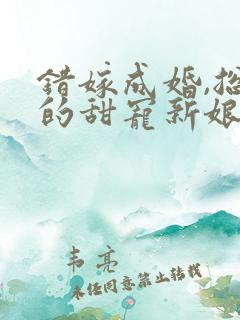 错嫁成婚,总
的甜宠新娘
韦亮
未经同意禁止转载